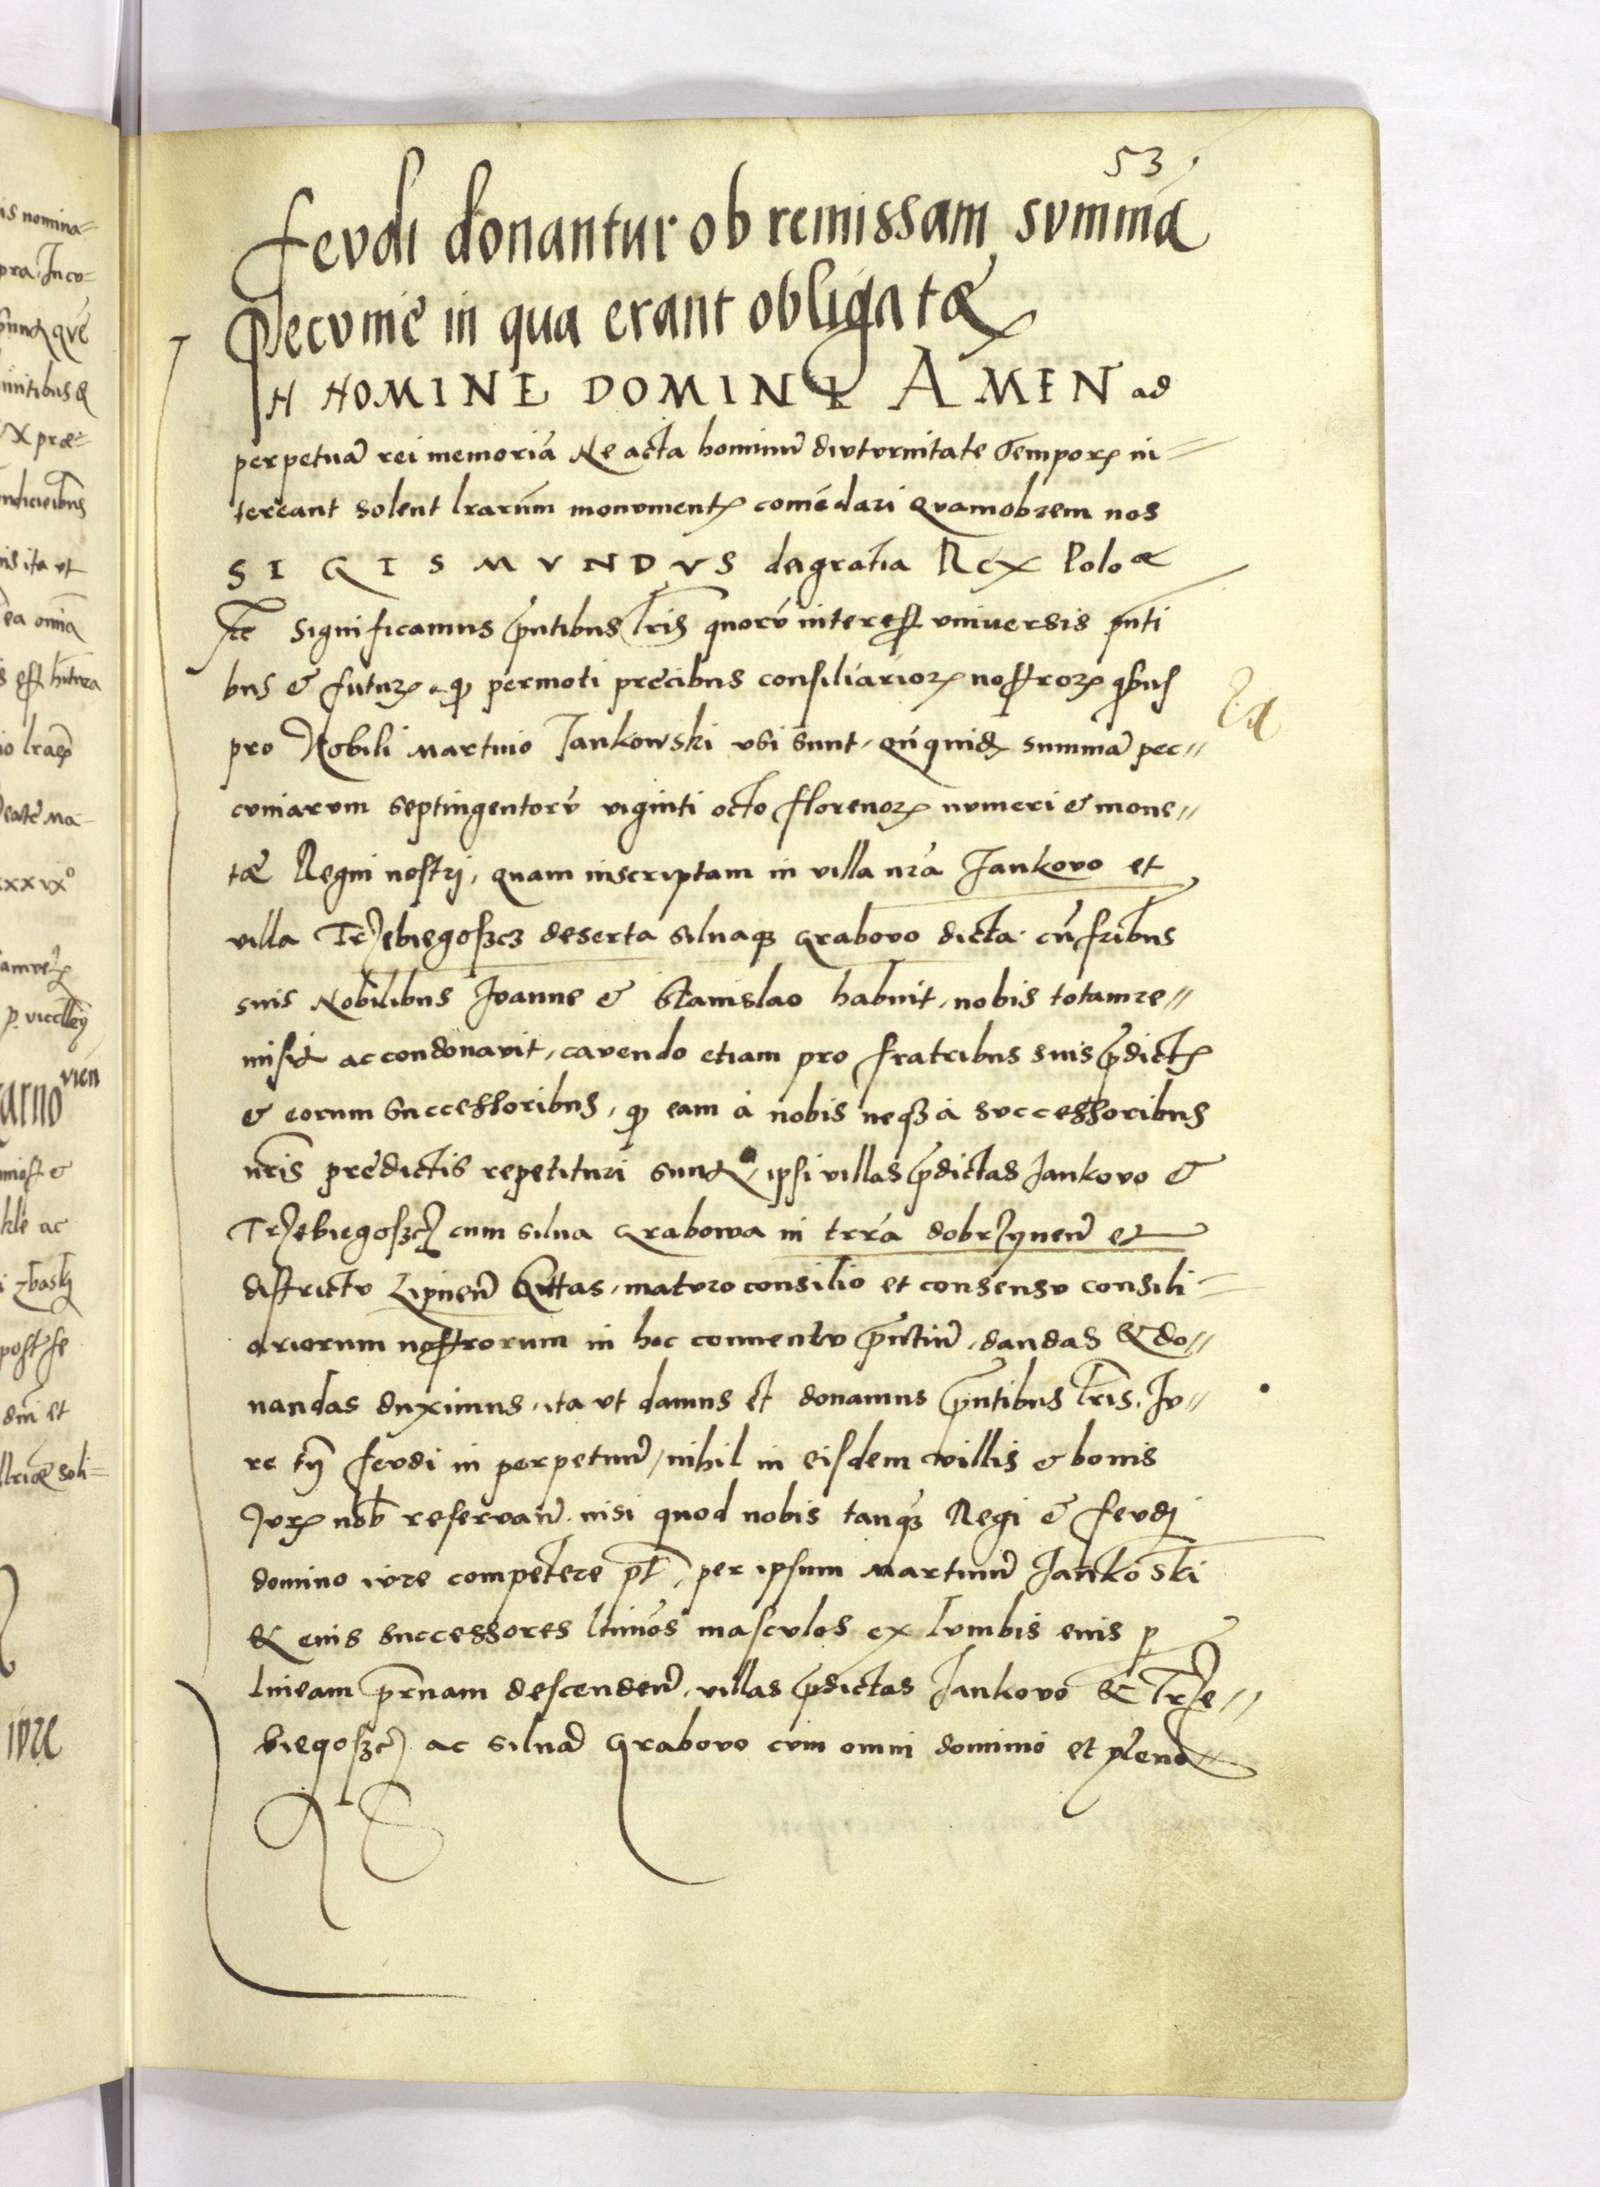 53
feudi donantur ob remissam summā
Pecunie in qua erant obligatæ
IN NOMINE DOMINI AMEN ad
perpetuā rei memoriā Ne acta hominū diuturnitate Tempoꝝ in=
tereant solent lrarum monumentꝭ comēdari Quamobrem nos
SIGISMVNDVS dei gratia Rex Poloæ
Significamus pn̄tibus lris quorū interest vniuersis pn̄ti
bus & futuꝝ ꝙ permoti precibus consiliarioꝝ nostroꝝ qbus
pro Nobili Martino Jankowski vsi sunt, summā pec=
cuniarum septingentorū viginti octo florenoꝝ numeri & mone=
tæ Regni nostri, quam inscriptam in villa nr̄a Jankovo et
villa Trzebiegoszcz deserta siluaqꝫ Grabovo dicta cū fribus
suis Nobilibus Joanne & Stanislao habuit, nobis totam re=
misit ac condonavit, cavendo etiam pro fratribus suis p̄dictꝭ
& eorum successoribus, ꝙ eam à nobis neqꝫ à successoribus
nr̄is predictis repetituri sunt, ipsi villas p̄dictas Jankovo &
Trzebiegoszcz cum silua Grabowa in trrā dobrzynen̄ et
districtu Lipnen̄ sittas, maturo consilio et consensu consili=
ariorum nostrorum in hoc conuentu pn̄tium, dandas & do=
nandas duximus, ita vt damus et donamus pn̄tibus lris, Ju=
re tn̄ feudi in perpetuū, nihil in eisdem villis & bonis
Juꝝ nob reseruan̄. nisi quod nobis tanqꝫ Regi & feudi
domino iure competere pt̄, per ipsum Martinū Jankoski
& eius successores ltimos masculos ex lumbis eius p
lineam pr̄nam descenden̄, villas p̄dictas Jankovo & Trze=
biegoszcz ac siluā Grabovo cum omni dominio et pleno